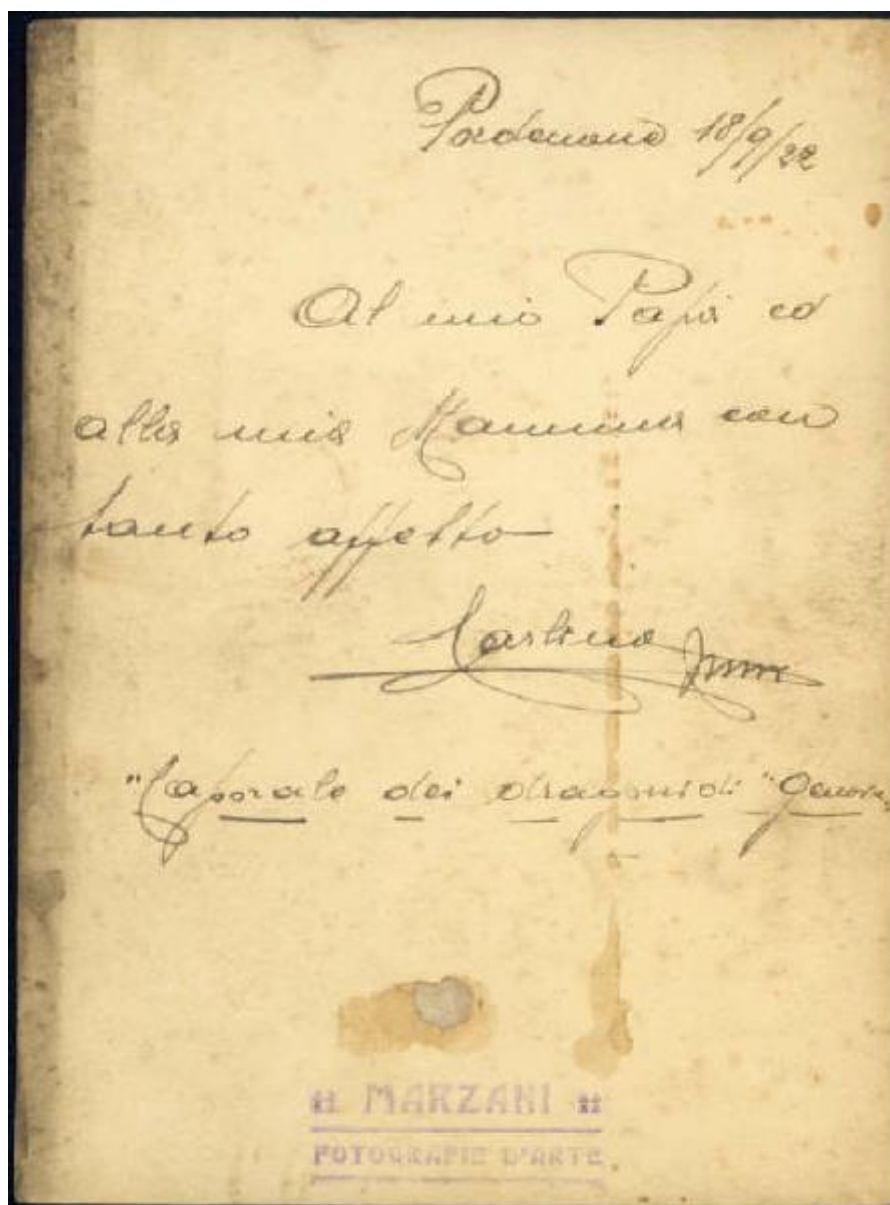 Pordenone 18/9/22
Al mio Papà ed
alla mia Mamma con
tanto affetto
Carlino
"Caporale dei dragoni di "Genova"
MARZANI
FOTOGRAFIE D'ARTE